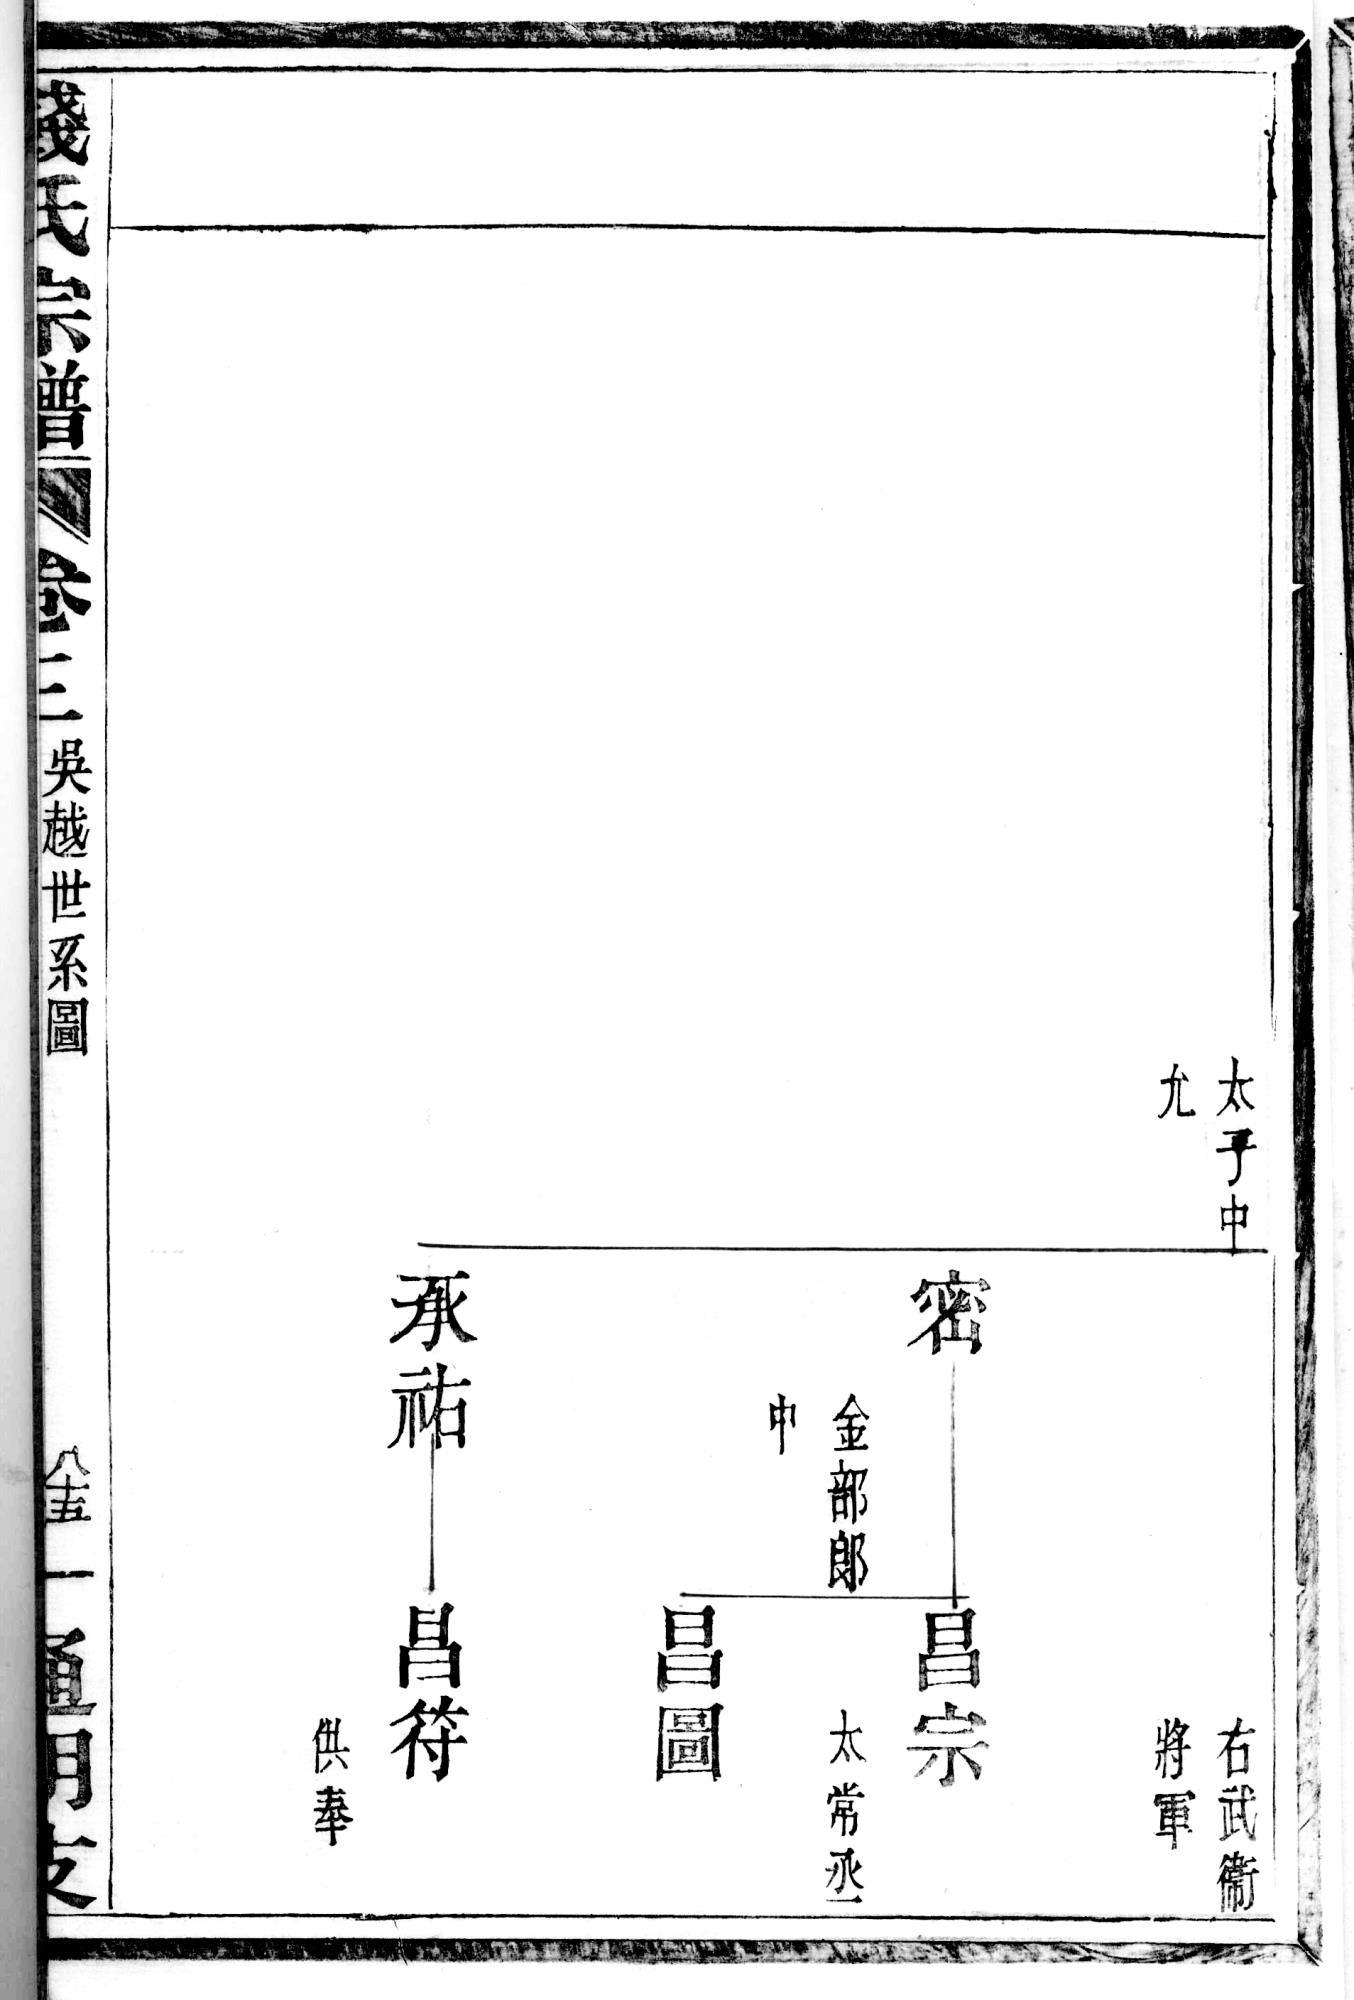 太子中
允
右武衞
將軍
密
金部郎
中
昌宗
太常丞
昌圖
承祐
昌符
供奉
錢氏宗譜 卷三 吳越世系圖 八十五 一 通明支